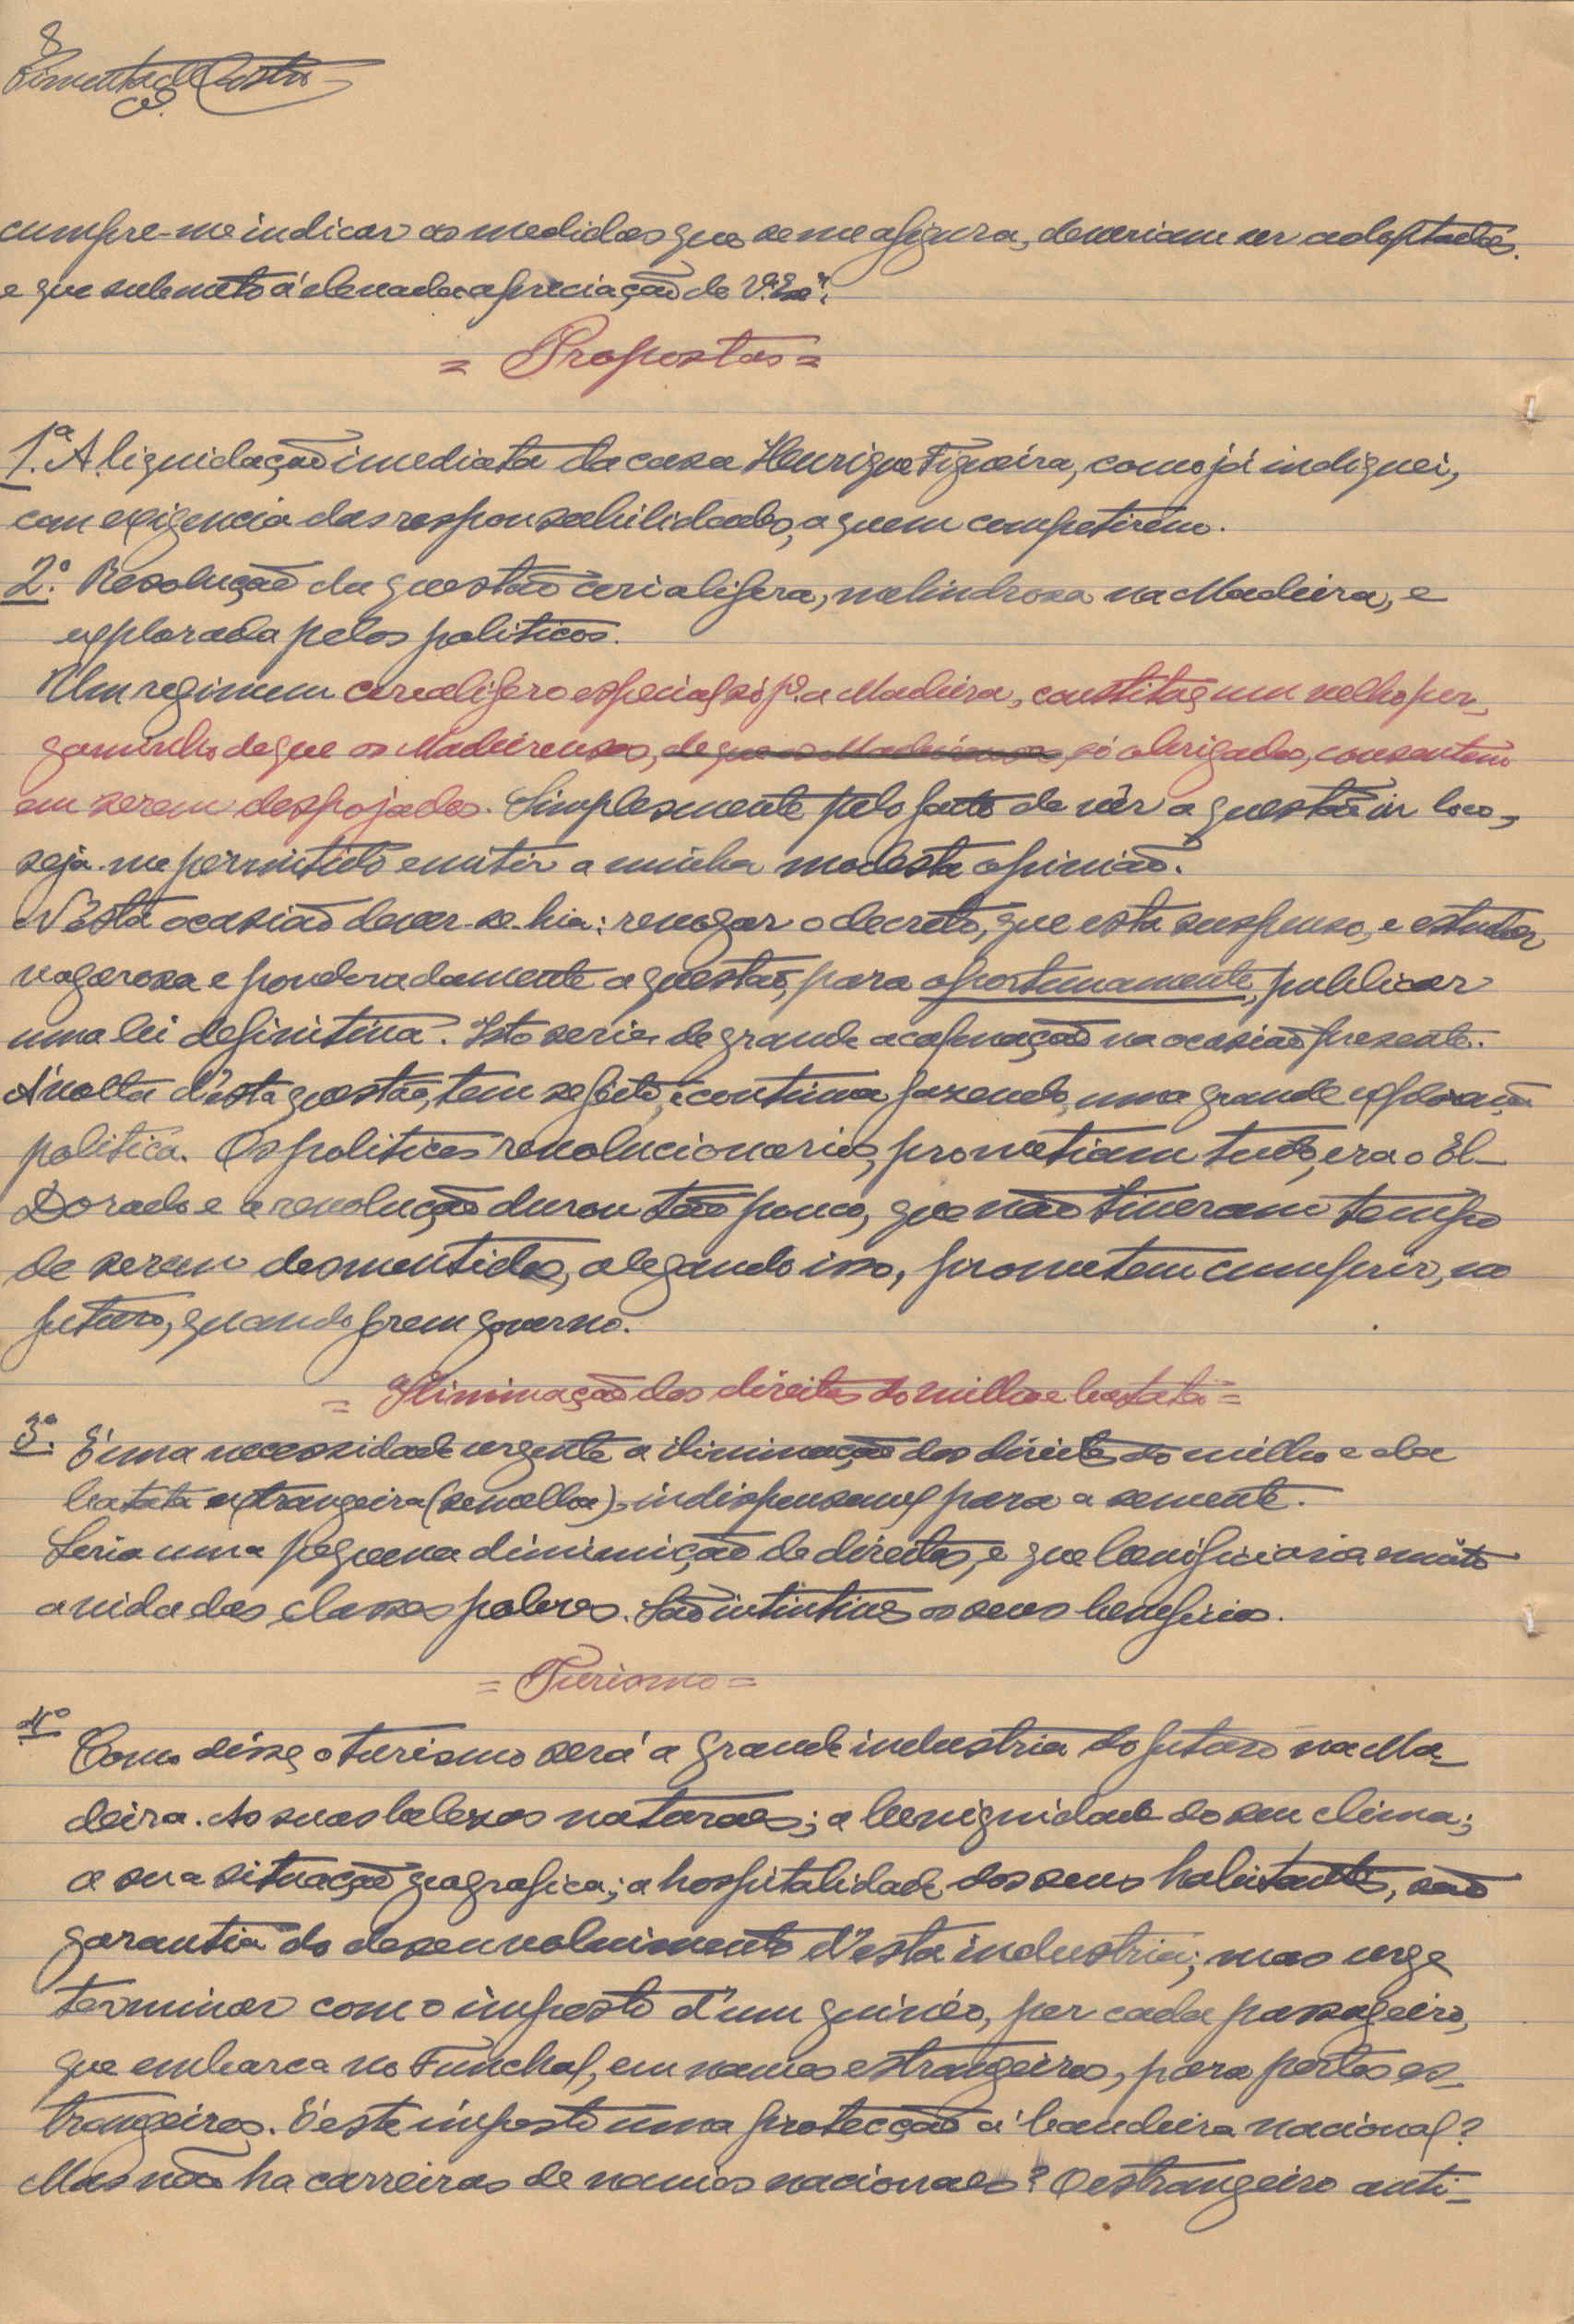 8
Pimenta de Castro
cumpre-me indicar as medidas que se me afigura, deveriam ser adoptadas.
e que submeto á elevada apreciação de V.ª Exª.
= Propostas =
1.ª A liquidação imediata da casa Henrique Figueira, como já indiquei,
com exigencia das responsabilidades, a quem competirem.
2.º Resolução da questão cerialifera, melindrosa na Madeira, e
explorada pelos politicos.
Um regimem cerealifero especial só pª. a Madeira, constitue um velho per-
gaminho de que os Madeirenses, de que os Madeirenses, só obrigados, consentem
em serem despojados. Simplesmente pelo facto de vêr a questão in loco,
seja-me permitido emitir a minha modesta opinião.
N'esta ocasião dever-se-hia: revogar o decreto, que está suspenso, e estudar
vagarosa e ponderadamente a questão, para oportunamente, publicar
uma lei definitiva. Isto seria de grande acalmação na ocasião presente.
Á volta d'esta questão, tem se feito, e continua fazendo, uma grande exploração
politica. Os politicos revolucionarios, prometiam tudo, era o El-
Dorado e a revolução durou tão pouco, que não tiveram tempo
de serem desmentidos, alegando isso, prometem cumprir, no
futuro, quando forem governo.
= Iliminação dos direitos do milho e batata =
3.º É uma necessidade urgente a iliminação dos direitos do milho e da
batata extrangeira (semelha), indispensavel para a semente.
Seria uma pequena diminuição de direitos, e que benificiaria muito
a vida das classes pobres. São intintivos os seus beneficios.
= Turismo =
4º
Como disse, o turismo será a grande industria do futuro na Ma-
deira. As suas belezas naturaes; a benignidade do seu clima;
a sua situação geografica; a hospitalidade dos seus habitantes, são
garantia do desenvolvimento d'esta industria; mas urge
terminar com o imposto d'um guinéo, por cada passageiro,
que embarca no Funchal, em navios estrangeiros, para portos es-
trangeiros. É este imposto uma protecção á bandeira nacional?
Mas não ha carreiras de navios nacionaes? O estrangeiro anti-